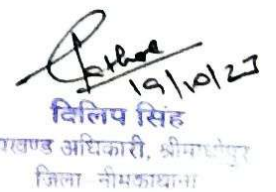 19/10/23
दिलिप सिंह
खण्ड अधिकारी, श्रीमाधोपुर
जिला नीमकाथाना